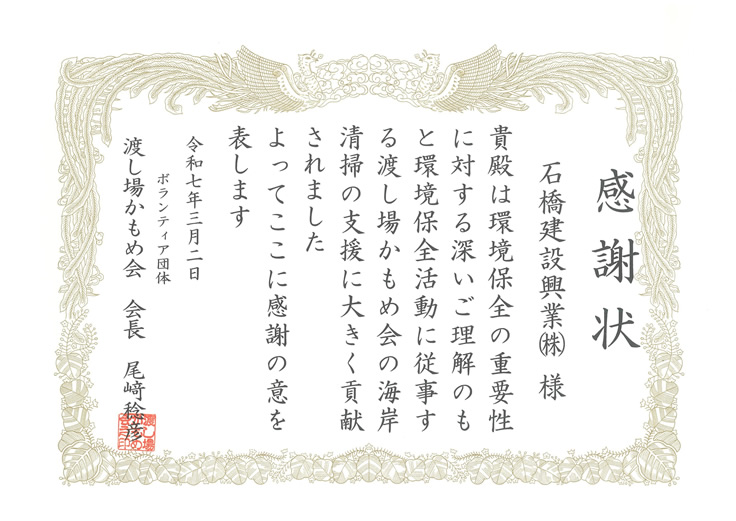 感謝状
石橋建設興業㈱ 様
貴殿は環境保全の重要性
に対する深いご理解のも
と環境保全活動に従事す
る渡し場かもめ会の海岸
清掃の支援に大きく貢献
されました
よってここに感謝の意を
表します
令和七年三月二日
ボランティア団体
渡し場かもめ会 会長 尾﨑稔彦